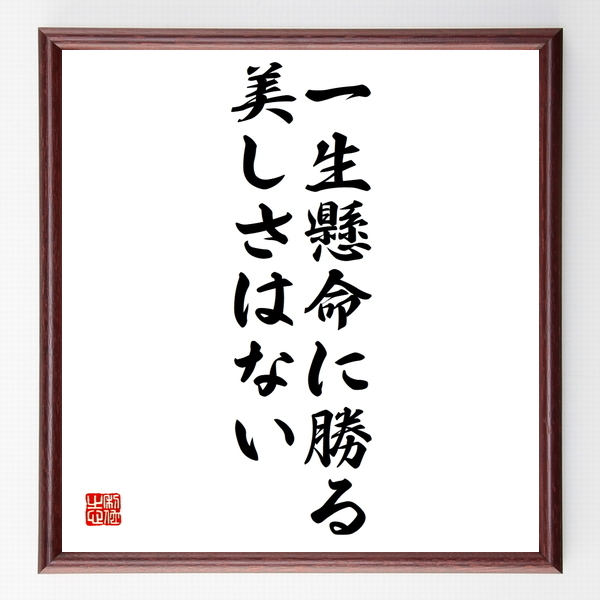 一生懸命に勝る
美しさはない